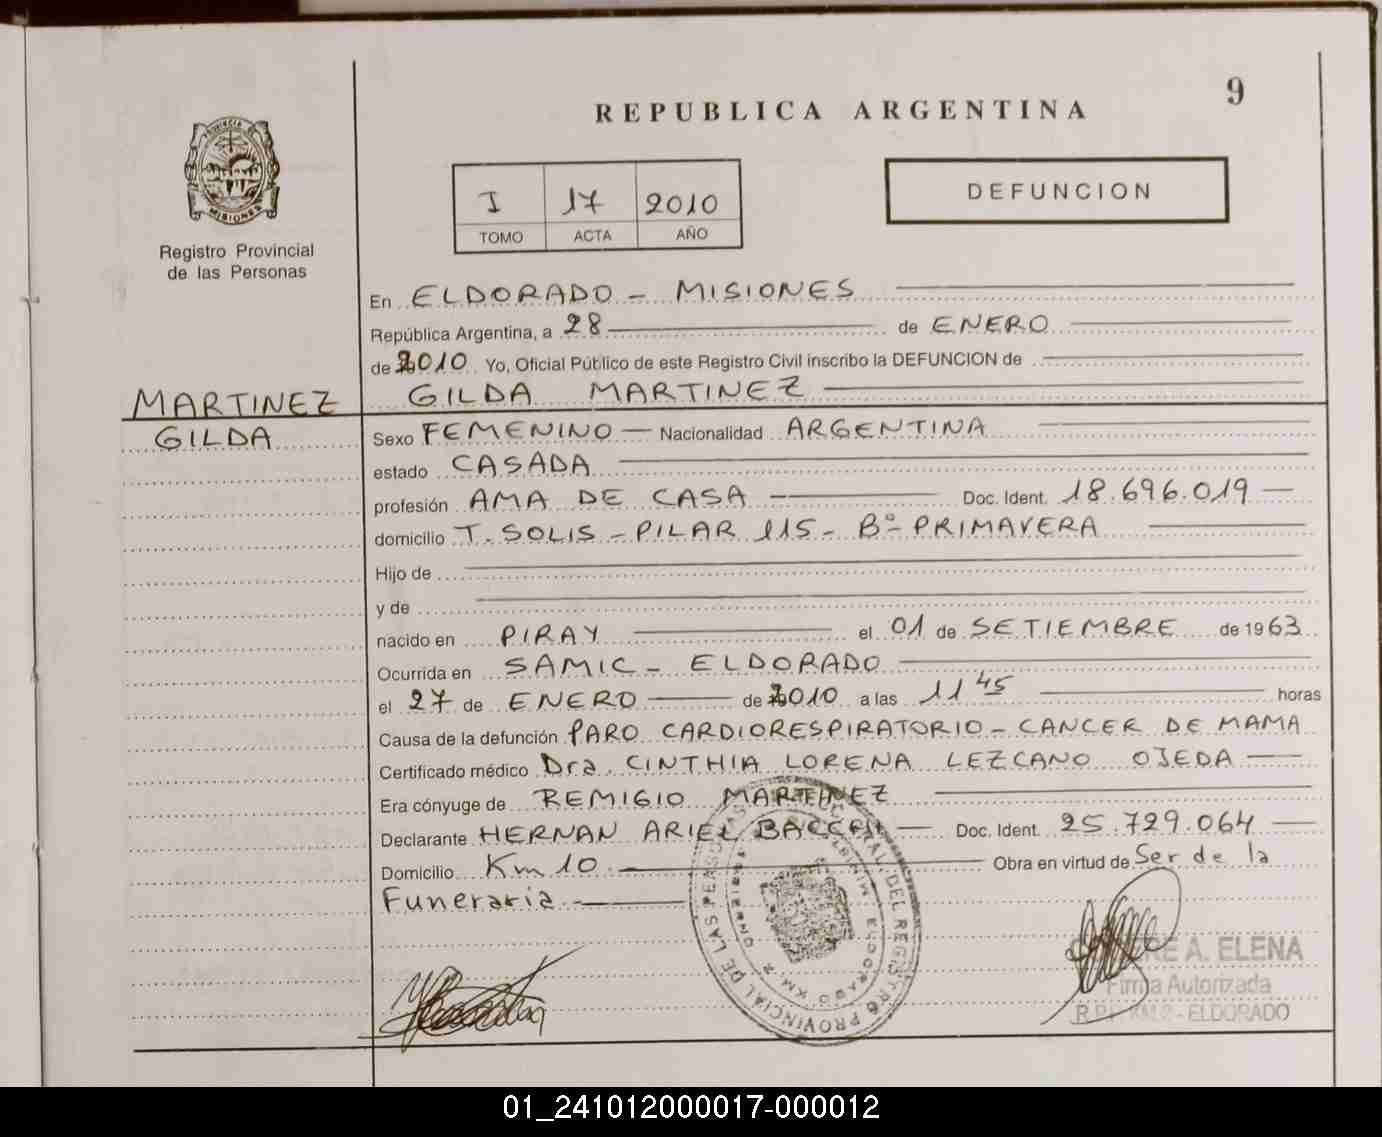 9
REPUBLICA ARGENTINA
PROVINCIA
MISIONES
Registro Provincial
de las Personas
I 17 2010
TOMO ACTA AÑO
DEFUNCION
En ELDORADO - MISIONES
República Argentina, a 28 de ENERO
de 2010 Yo, Oficial Público de este Registro Civil inscribo la DEFUNCION de
GILDA MARTINEZ
MARTINEZ
GILDA
Sexo FEMENINO Nacionalidad ARGENTINA
estado CASADA
profesión AMA DE CASA Doc. Ident. 18.696.019
domicilio T. SOLIS - PILAR 115 - Bº PRIMAVERA
Hijo de
y de
nacido en PIRAY el 01 de SETIEMBRE de 1963
Ocurrida en SAMIC - ELDORADO
el 27 de ENERO de 2010 a las 11 45 horas
Causa de la defunción PARO CARDIORESPIRATORIO - CANCER DE MAMA
Certificado médico Dra. CINTHIA LORENA LEZCANO OJEDA
Era cónyuge de REMIGIO MARTINEZ
Declarante HERNAN ARIEL Doc. Ident. 25.729.064
Domicilio Km 10 Obra en virtud de Ser de la
Funeraria
DEL REGISTRO PROVINCIAL DE LAS PERSONAS
ELDORADO KM. 2
A. ELENA
Firma Autorizada
R.P.P. KM.2 - ELDORADO
01_241012000017-000012